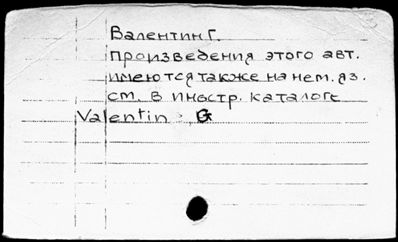 Валентин Г.
Произведения этого авт.
имеются также на нем. яз.
см. в иностр. каталоге
Valentin, G